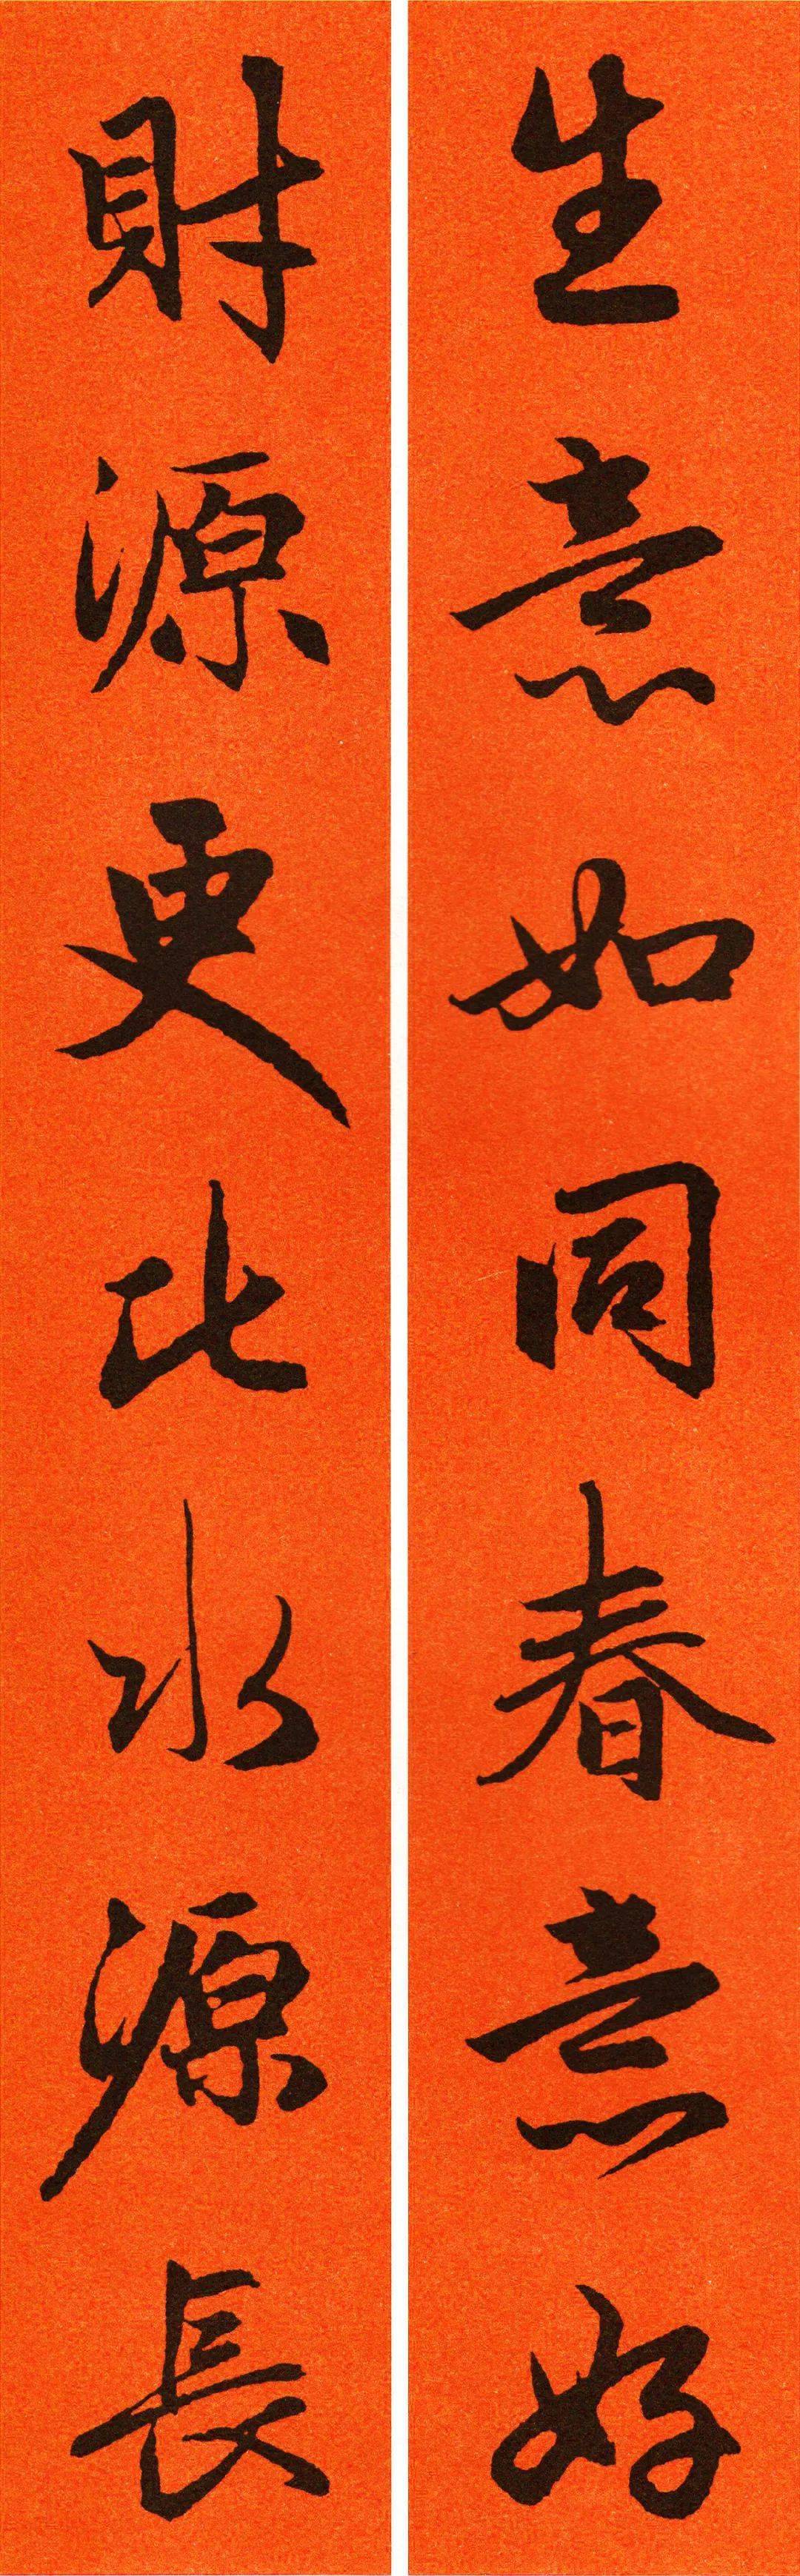 生意如同春意好
財源更比水源長